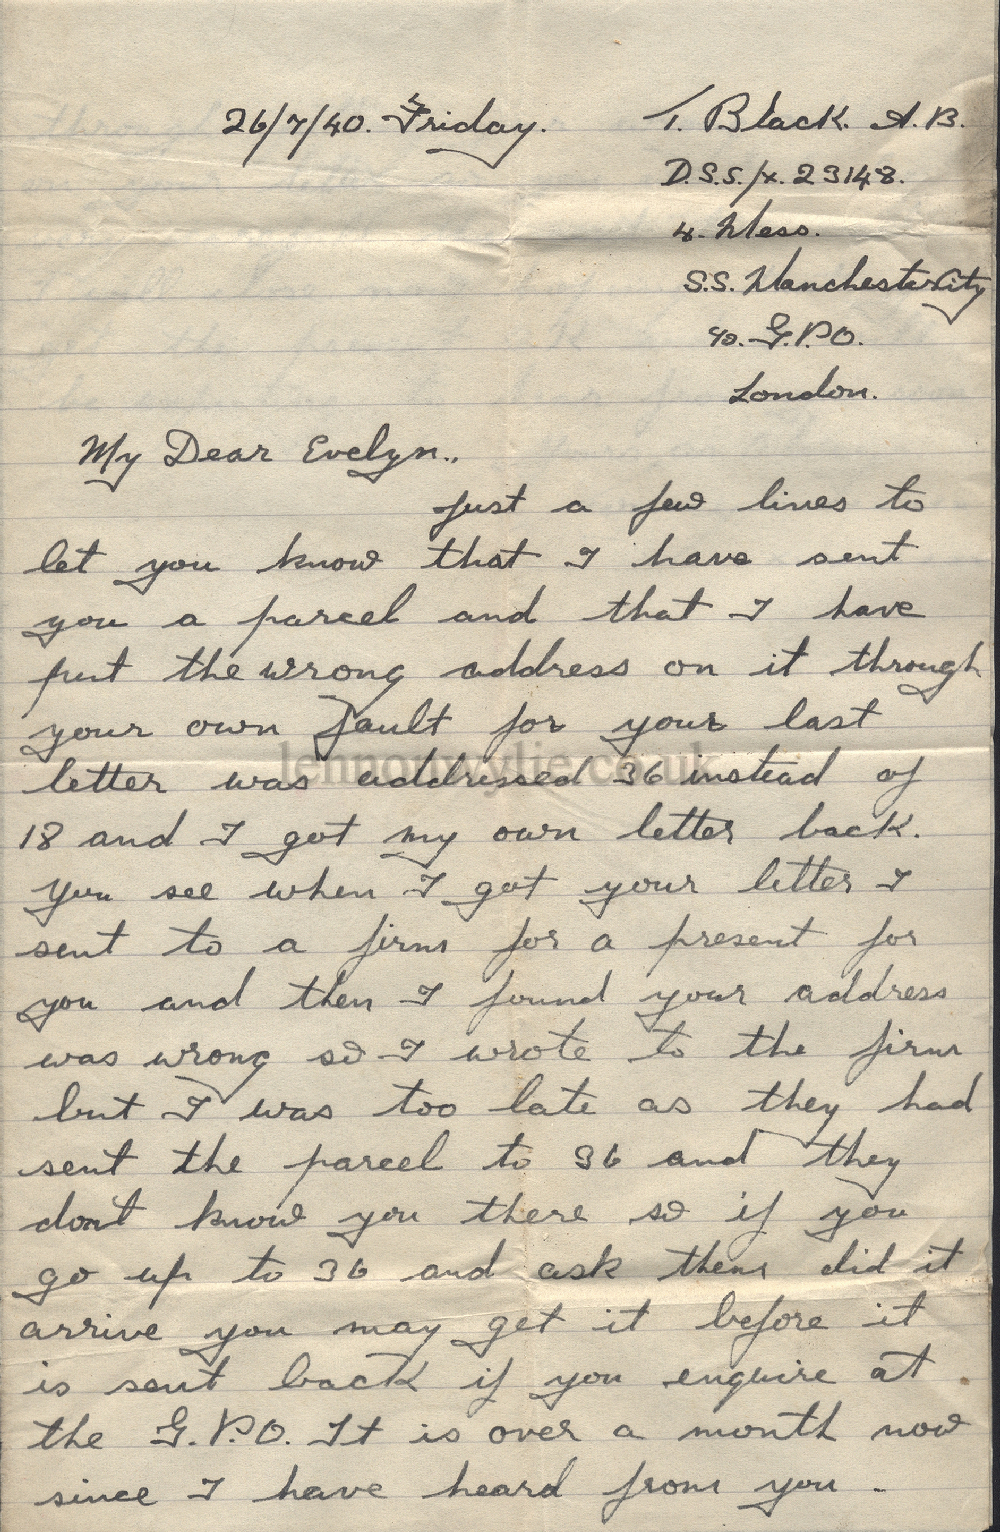 26/7/40. Friday.
T. Black. A.B.
D.S.S./x. 23148.
4. Mess.
S.S. Manchester City
c/o. G.P.O.
London.
My Dear Evelyn.,
Just a few lines to
let you know that I have sent
you a parcel and that I have
put the wrong address on it through
your own fault for your last
letter was addressed 36 instead of
18 and I got my own letter back.
You see when I got your letter I
sent to a firm for a present for
you and then I found your address
was wrong so I wrote to the firm
but I was too late as they had
sent the parcel to 36 and they
don't know you there so if you
go up to 36 and ask them did it
arrive you may get it before it
is sent back if you enquire at
the G.P.O. It is over a month now
since I have heard from you -
lennonwylie.co.uk